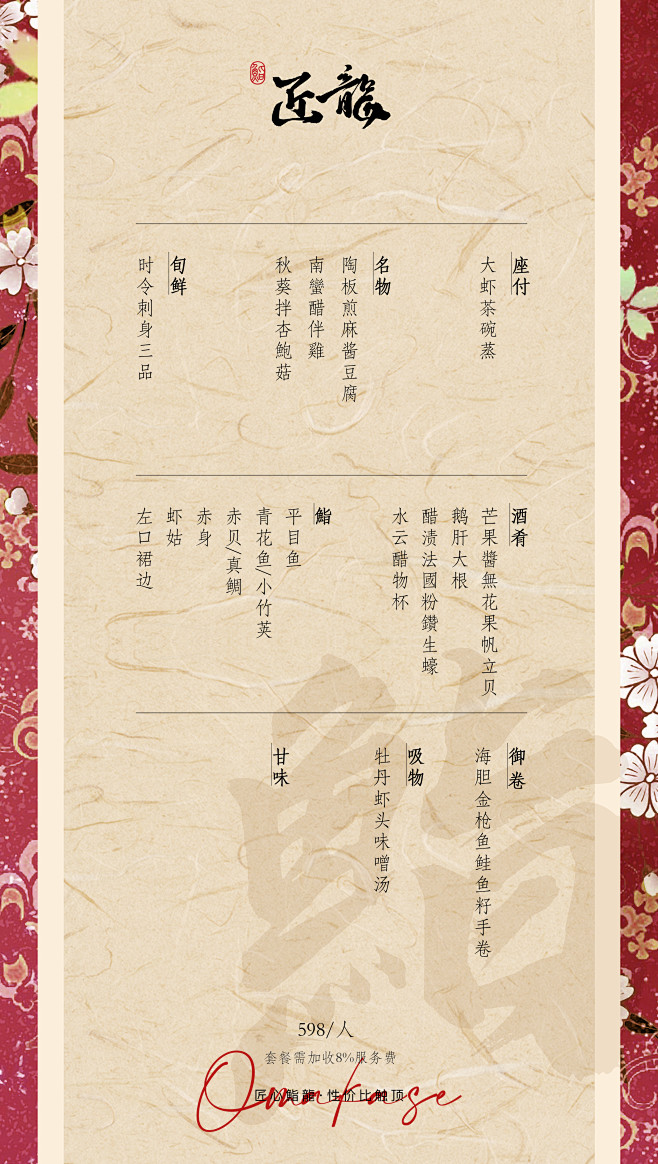 鮨
匠龍
座付
大虾茶碗蒸
名物
陶板煎麻酱豆腐
南蠻醋伴雞
秋葵拌杏鲍菇
旬鲜
时令刺身三品
酒肴
芒果醬無花果帆立贝
鹅肝大根
醋渍法國粉鑽生蠔
水云醋物杯
鮨
平目鱼
青花鱼/小竹荚
赤贝/真鲷
赤身
虾姑
左口裙边
御卷
海胆金枪鱼鲑鱼籽手卷
吸物
牡丹虾头味噌汤
甘味
鮨
598/人
套餐需加收8%服务费
匠心鮨龍·性价比触顶
Omakase